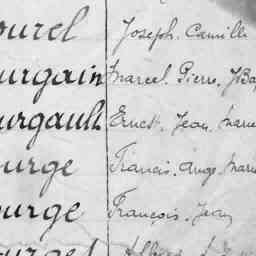 ourel Joseph. Camille
urgain Marcel. Pierre. J Ba
urgault Ernest. Jean. Marie
urge Francis. Ange. Marie
ourge François. Jean